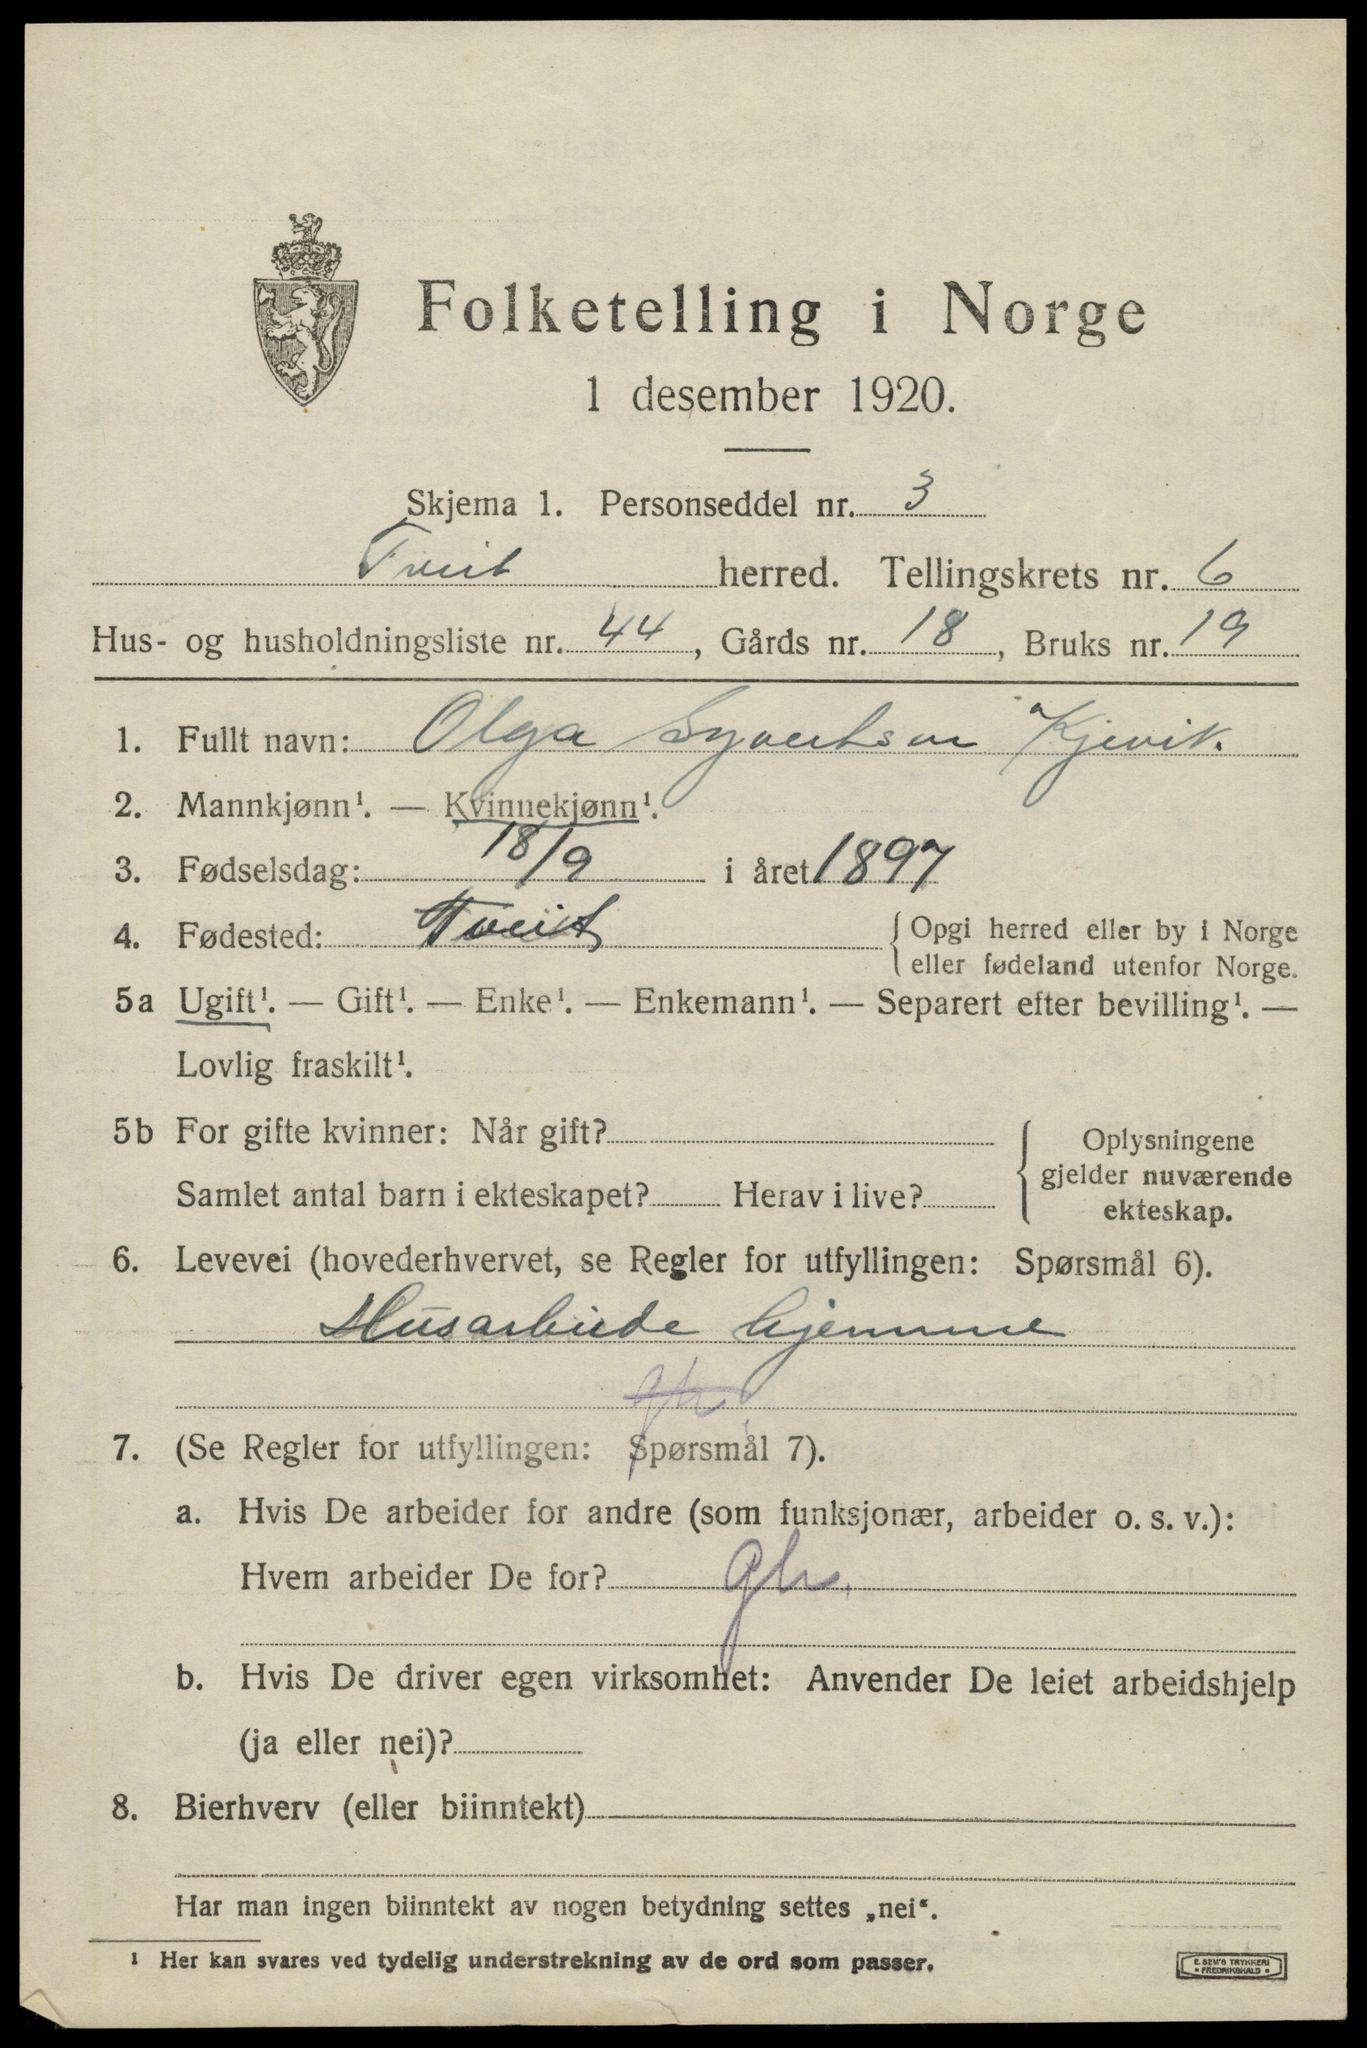 Folketelling i Norge
1 desember 1920.
Skjema 1. Personseddel nr. 3
Tveit herred. Tellingskrets nr. 6
Hus- og husholdningsliste nr. 44, Gårds nr. 18, Bruks nr. 19
1. Fullt navn: Olga Syvertsen Kjevik.
2. Mannkjønn¹. — Kvinnekjønn¹.
3. Fødselsdag: 18/9 i året 1897
4. Fødested: Tveit { Opgi herred eller by i Norge
eller fødeland utenfor Norge.
5a Ugift¹. — Gift¹. — Enke¹. — Enkemann¹. — Separert efter bevilling¹. —
Lovlig fraskilt¹.
5b For gifte kvinner: Når gift? { Oplysningene
gjelder nuværende
Samlet antal barn i ekteskapet? Herav i live?
ekteskap.
6. Levevei (hovederhvervet, se Regler for utfyllingen: Spørsmål 6).
Husarbeide hjemme
gh.
7. (Se Regler for utfyllingen: Spørsmål 7).
a. Hvis De arbeider for andre (som funksjonær, arbeider o. s. v.):
Hvem arbeider De for? gh.
b. Hvis De driver egen virksomhet: Anvender De leiet arbeidshjelp
(ja eller nei)?
8. Bierhverv (eller biinntekt)
Har man ingen biinntekt av nogen betydning settes „nei“.
¹ Her kan svares ved tydelig understrekning av de ord som passer.
E. SEM'S TRYKKERI
FREDRIKSHALD